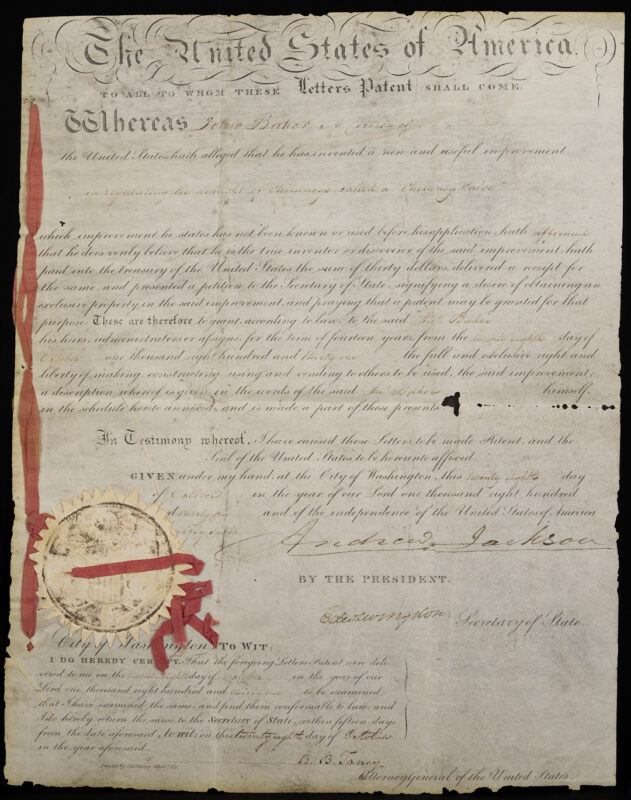 The United States of America.
TO ALL TO WHOM THESE Letters Patent SHALL COME:
Whereas John Baker A Citizen of
the United States, hath alleged that he has invented a new and useful improvement
in regulating the draught of Chimneys called a "Chimney
which improvement he states has not been known or used before his application, hath affirmed
that he does verily believe that he is the true inventor or discoverer of the said improvement, hath
paid into the treasury of the United States the sum of thirty dollars, delivered a receipt for
the same, and presented a petition to the Secretary of State, signifying a desire of obtaining an
exclusive property in the said improvement, and praying that a patent may be granted for that
purpose. These are therefore to grant, according to law, to the said Jno. Baker
his heirs, administrators or assigns, for the term of fourteen years, from the twenty eighth day of
October one thousand eight hundred and thirty one the full and exclusive right and
liberty of making, constructing, using and vending to others to be used, the said improvement,
a description whereof is given in the words of the said Jno. Baker himself,
in the schedule hereto annexed, and is made a part of these presents.
In Testimony whereof, I have caused these Letters to be made Patent, and the
Seal of the United States to be hereunto affixed.
GIVEN under my hand, at the City of Washington, this twenty eighth day
of October in the year of our Lord one thousand eight hundred
and of the independence of the United States of America
Andrew Jackson
BY THE PRESIDENT.
Edw. Livingston Secretary of State.
City of Washington, TO WIT:
I DO HEREBY CERTIFY, That the foregoing Letters Patent were deli-
vered to me on the twenty eighth day of October in the year of our
Lord one thousand eight hundred and thirty one to be examined;
that I have examined the same, and find them conformable to law; and
I do hereby return the same to the Secretary of State, within fifteen days
from the date aforesaid, to wit; on this twenty eighth day of October
in the year aforesaid.
R. B. Taney
Attorney General of the United States.